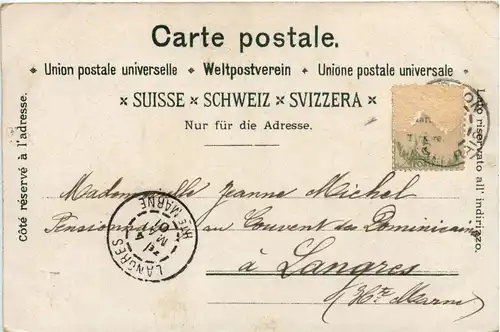 Carte postale.
Union postale universelle ◆ Weltpostverein ◆ Unione postale universale
× SUISSE × SCHWEIZ × SVIZZERA ×
Nur für die Adresse.
Côté réservé à l'adresse.
Lato riservato all'indirizzo.
Mademoiselle Jeanne Michel
Pensionnaire au Couvent des Dominicaines
à Langres
(Hte Marne)
LANGRES
HTE MARNE
MAI
01